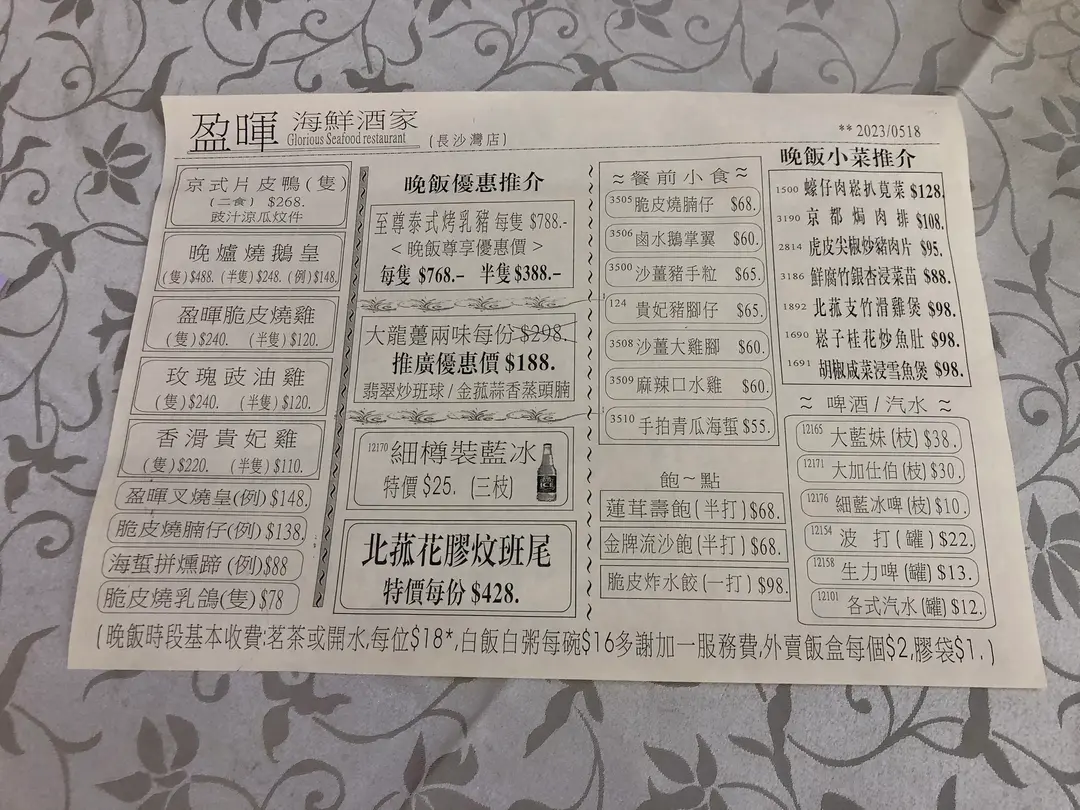 盈暉 海鮮酒家
Glorious Seafood restaurant
(長沙灣店)
** 2023/0518
京式片皮鴨(隻)
(二食) $268.
豉汁涼瓜炆件
晚爐燒鵝皇
(隻)$488. (半隻)$248. (例)$148.
盈暉脆皮燒雞
(隻)$240. (半隻)$120.
玫瑰豉油雞
(隻)$240. (半隻)$120.
香滑貴妃雞
(隻)$220. (半隻)$110.
盈暉叉燒皇(例)$148.
脆皮燒腩仔(例)$138.
海蜇拼燻蹄(例)$88
脆皮燒乳鴿(隻)$78
晚飯優惠推介
至尊泰式烤乳豬 每隻 $788.-
<晚飯尊享優惠價>
每隻 $768.- 半隻 $388.-
大龍躉兩味每份 $298.
推廣優惠價 $188.
翡翠炒班球/金菰蒜香蒸頭腩
12170 細樽裝藍冰
特價 $25. (三枝)
北菰花膠炆班尾
特價每份 $428.
≈ 餐前小食 ≈
3505 脆皮燒腩仔 $68.
3506 鹵水鵝掌翼 $60.
3500 沙薑豬手粒 $65.
124 貴妃豬腳仔 $65.
3508 沙薑大雞腳 $60.
3509 麻辣口水雞 $60.
3510 手拍青瓜海蜇 $55.
飽~點
蓮茸壽飽(半打)$68.
金牌流沙飽(半打)$68.
脆皮炸水餃(一打)$98.
晚飯小菜推介
1500 蠔仔肉崧扒莧菜 $128.
3190 京都焗肉排 $108.
2814 虎皮尖椒炒豬肉片 $95.
3186 鮮腐竹銀杏浸菜苗 $88.
1892 北菰支竹滑雞煲 $98.
1690 崧子桂花炒魚肚 $98.
1691 胡椒咸菜浸雪魚煲 $98.
≈ 啤酒/汽水 ≈
12165 大藍妹(枝)$38.
12171 大加仕伯(枝)$30.
12176 細藍冰啤(枝)$10.
12154 波打(罐)$22.
12158 生力啤(罐)$13.
12101 各式汽水(罐)$12.
(晚飯時段基本收費:茗茶或開水,每位$18*,白飯白粥每碗$16多謝加一服務費,外賣飯盒每個$2,膠袋$1.)